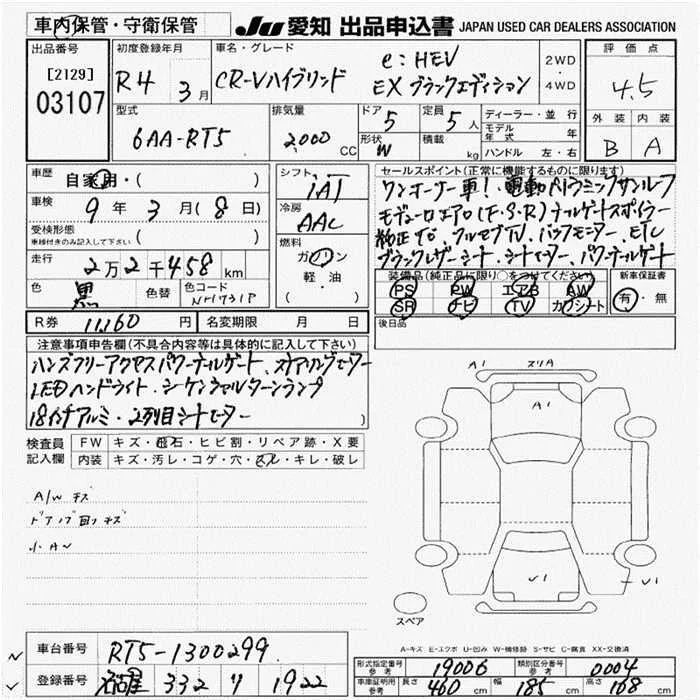 車内保管・守衛保管
JU 愛知 出品申込書 JAPAN USED CAR DEALERS ASSOCIATION
出品番号
[2129]
03107
初度登録年月
R4 3月
車名・グレード
e:HEV
CR-Vハイブリッド EX ブラックエディション
2WD
・
4WD
評価点
4.5
外装 内装
B A
型式
6AA-RT5
排気量
2000 CC
ドア 5
形状 W
定員 5人
積載 kg
ディーラー・並行
モデル年式 年
ハンドル 左・右
車歴
自家用・( )
車検
9年 3月(8日)
受検形態
車検付きのみ記入して下さい ( )
走行
2万2千458 km
色 黒 色替
色コード NH731P
シフト
IAT
冷房
AAC
燃料
ガソリン
軽・油
( )
セールスポイント(正常に機能するものに限ります)
ワンオーナー車! 電動パノラミックサンルーフ
モデューロエアロ(F.S.R)テールゲートスポイラー
純正ナビ フルセグTV、バックモニター、ETC
ブラックレザーシート、シートヒーター、パワーテールゲート
装備品(純正品に限り○をつけてください)
PS PW エアB AW
SR ナビ TV カワシート
新車保証書
有・無
後日品
R券 11,160 円
名変期限 月 日
注意事項申告欄(不具合内容等は具体的に記入して下さい)
ハンズフリーアクセスパワーテールゲート、ステアリングヒーター
LEDヘッドライト、シーケンシャルターンランプ
18インチアルミ、2列目シートヒーター
検査員記入欄
FW キズ・飛石・ヒビ割・リペア跡・X要
内装 キズ・汚レ・コゲ・穴・スレ・キレ・破レ
A/W キズ
ドアノブ回りキズ
小AU
A1 スリA
A1
V1
V1
スペア
A-キズ E-エクボ U-凹み W-補修跡 S-サビ C-腐食 XX-交換済
車台番号 RT5-1300299
登録番号 名古屋 332 リ 1922
形式指定番号 参考 19006
類別区分番号 参考 0004
車庫証明用 参考 長さ 460 cm 幅 185 cm 高さ 168 cm